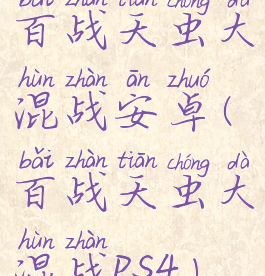 bǎi zhàn tiān chóng dà
百战天虫大
hùn zhàn ān zhuó
混战安卓(
bǎi zhàn tiān chóng dà
百战天虫大
hùn zhàn
混战PS4)